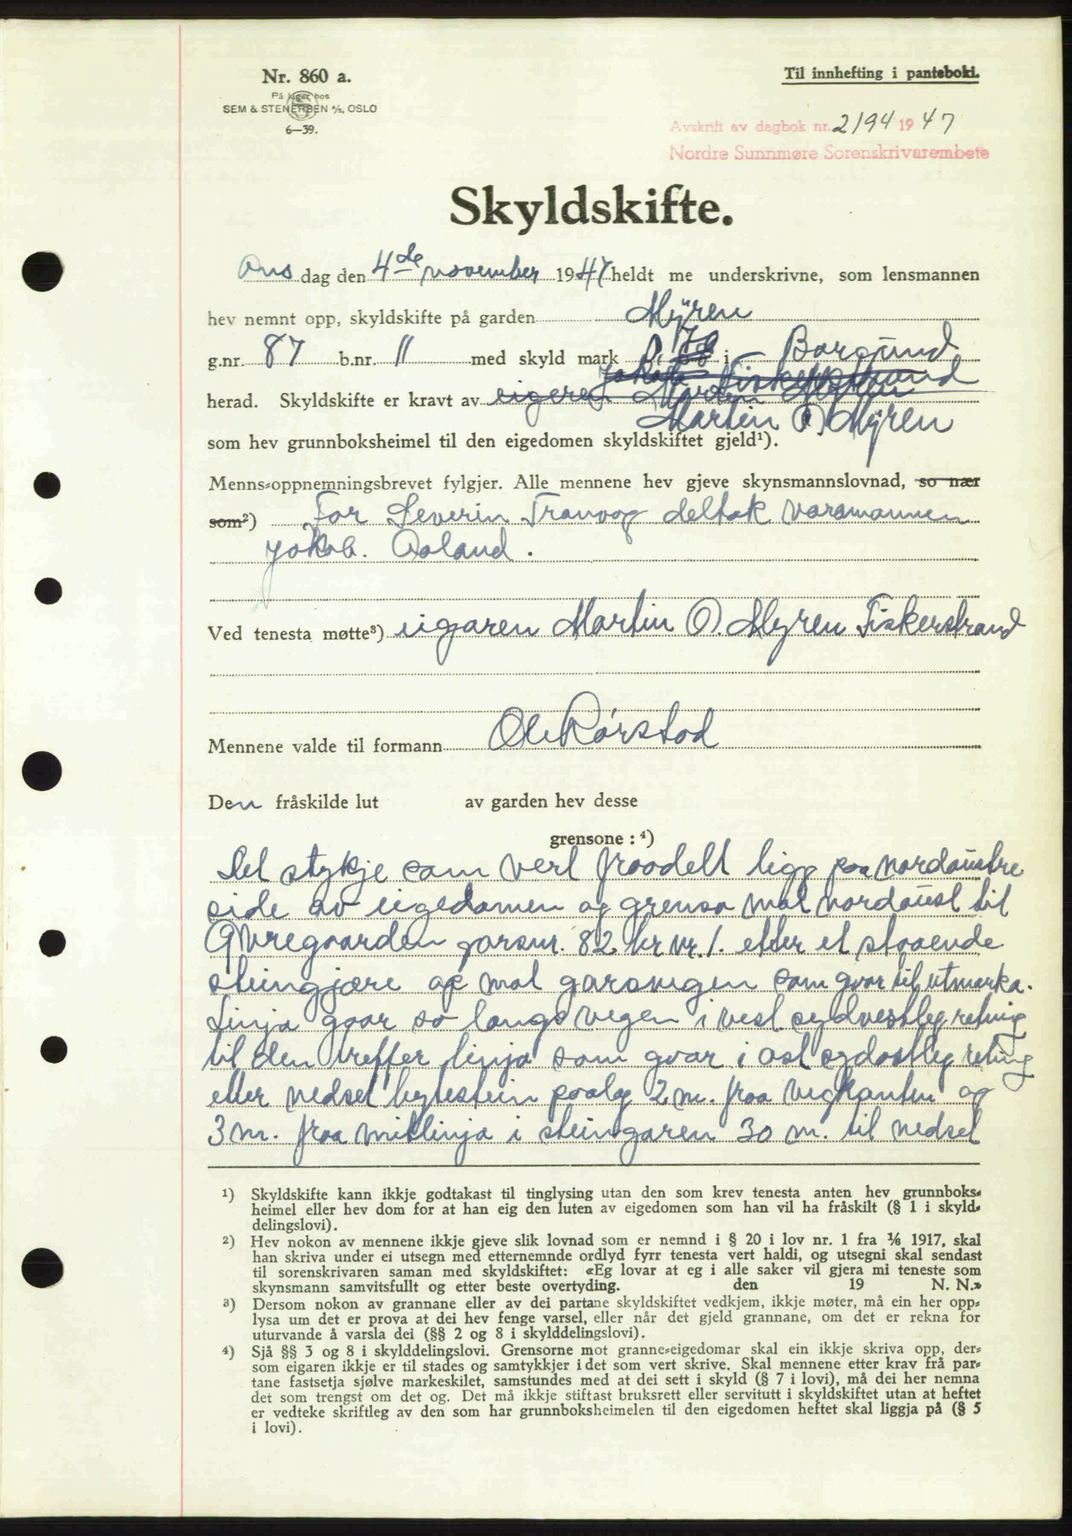 Nr. 860 a.
På lager hos
SEM & STENERSEN A/S, OSLO
6—39.
Til innhefting i panteboki.
Avskrift av dagbok nr. 2194 1947
Nordre Sunnmøre Sorenskrivarembete
Skyldskifte.
Ons dag den 4de november 1947 heldt me underskrivne, som lensmannen
hev nemnt opp, skyldskifte på garden Myren
g.nr. 87 b.nr. 11 med skyld mark i Borgund
herad. Skyldskifte er kravt av
Martin O. Myren
som hev grunnboksheimel til den eigedomen skyldskiftet gjeld¹).
Menns-oppnemningsbrevet fylgjer. Alle mennene hev gjeve skynsmannslovnad, so nær
som²) For Severin Tranvog deltok varamannen
Jakob. Aaland.
Ved tenesta møtte³) eigaren Martin O. Myren Fiskerstrand
Mennene valde til formann Ole Rørstad
Den fråskilde lut av garden hev desse
grensone : ⁴)
Det stykje som vert fraadelt ligg paa nordaustre
side av eigedomen og grensa mot nordaust til
garsnr. 82 br nr. 1. etter et staaende
steingjære og mot garsvegen som gvar til utmarka.
Linja gaar so langs vegen i vest sydvestleg retning
til den treffer linja som gvar i ost sydostleg retning
etter nedset bytestein paalag 2 m. fraa vegkanten og
3 m. fraa mitlinja i steingaren 30 m. til nedset
¹) Skyldskifte kann ikkje godtakast til tinglysing utan den som krev tenesta anten hev grunnboks-
heimel eller hev dom for at han eig den luten av eigedomen som han vil ha fråskilt (§ 1 i skyld-
delingslovi).
²) Hev nokon av mennene ikkje gjeve slik lovnad som er nemnd i § 20 i lov nr. 1 fra 1/6 1917, skal
han skriva under ei utsegn med etternemnde ordlyd fyrr tenesta vert haldi, og utsegni skal sendast
til sorenskrivaren saman med skyldskiftet: «Eg lovar at eg i alle saker vil gjera mi teneste som
skynsmann samvitsfullt og etter beste overtyding. den 19 N. N.»
³) Dersom nokon av grannane eller av dei partane skyldskiftet vedkjem, ikkje møter, må ein her opp-
lysa um det er prova at dei hev fenge varsel, eller når det gjeld grannane, om det er rekna for
uturvande å varsla dei (§§ 2 og 8 i skylddelingslovi).
⁴) Sjå §§ 3 og 8 i skylddelingslovi. Grensorne mot granne-eigedomar skal ein ikkje skriva opp, der-
som eigaren ikkje er til stades og samtykkjer i det som vert skrive. Skal mennene etter krav frå par-
tane fastsetja sjølve markeskilet, samstundes med at dei sett i skyld (§ 7 i lovi), må dei her nemna
det som trengst om det og. Det må ikkje stiftast bruksrett eller servitutt i skyldskiftet utan at heftet
er vedteke skriftleg av den som har grunnboksheimelen til den eigedomen heftet skal liggja på (§ 5
i lovi).